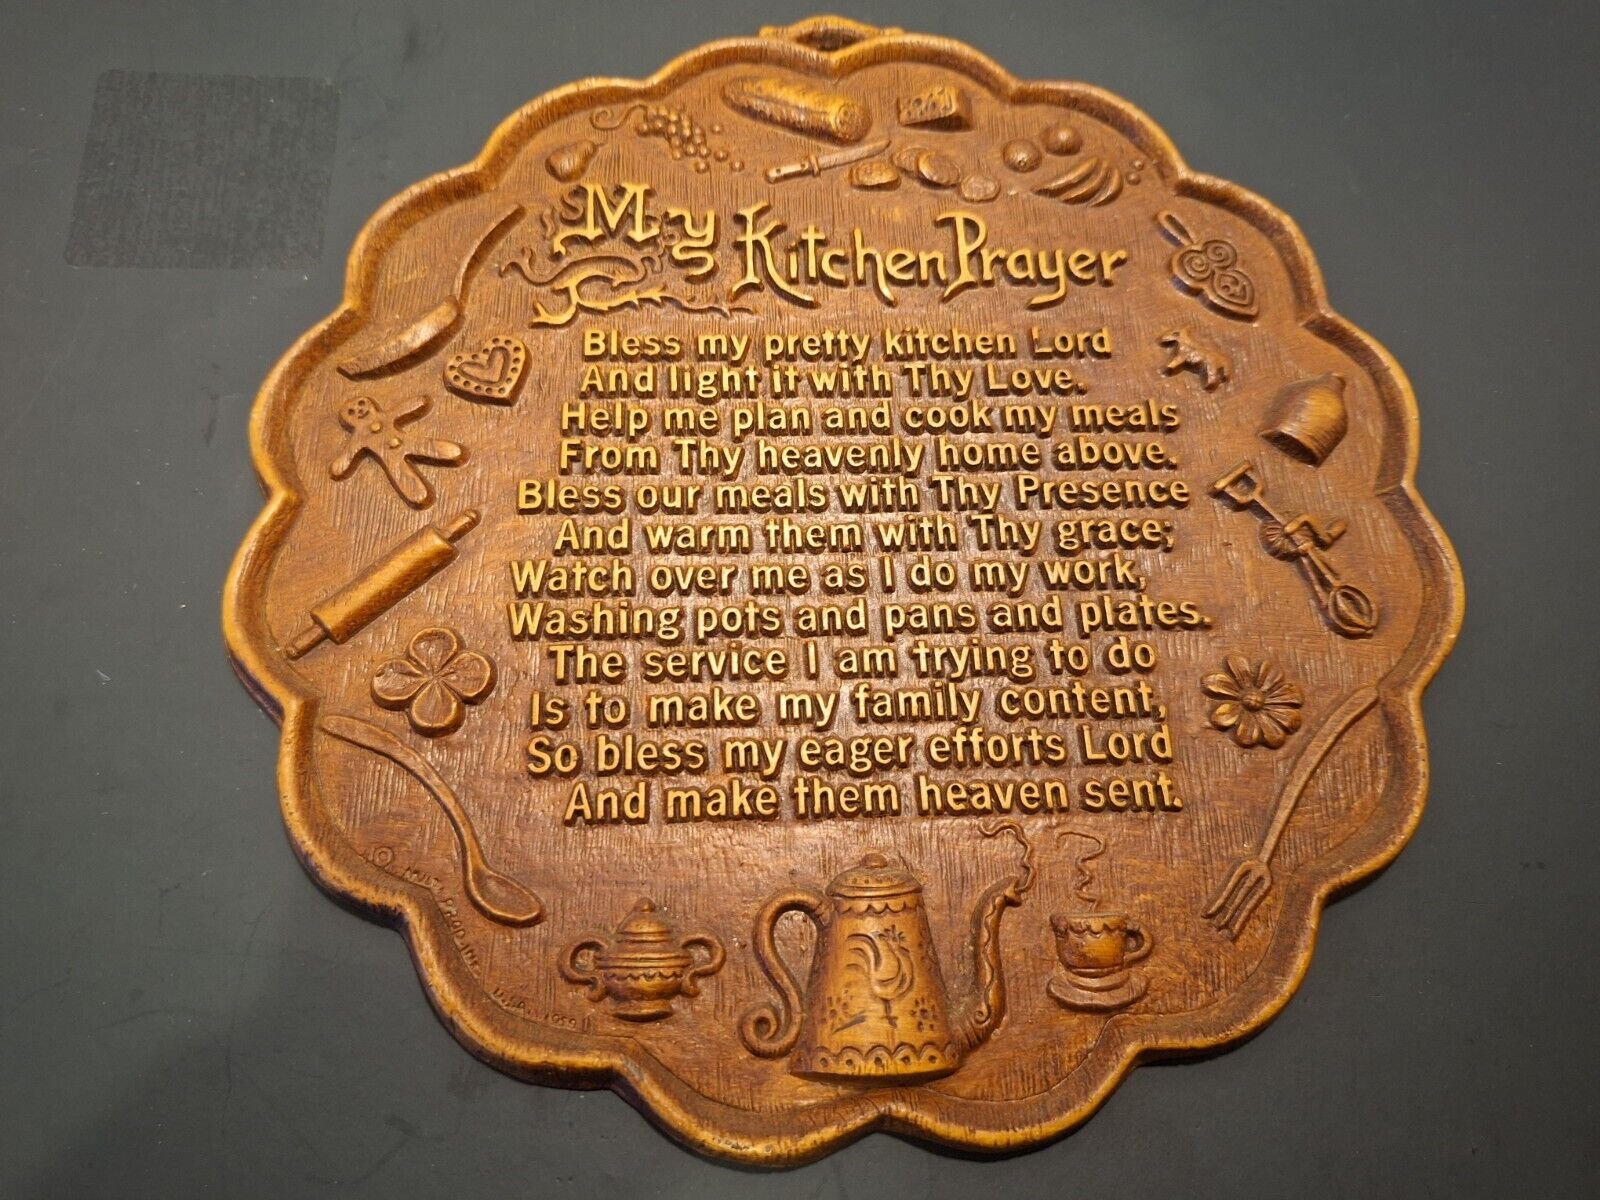 My Kitchen Prayer
Bless my pretty kitchen Lord
And light it with Thy Love.
Help me plan and cook my meals
From Thy heavenly home above.
Bless our meals with Thy Presence
And warm them with Thy grace;
Watch over me as I do my work,
Washing pots and pans and plates.
The service I am trying to do
Is to make my family content,
So bless my eager efforts Lord
And make them heaven sent.
© Multi Prod Inc
U.S.A. 1959